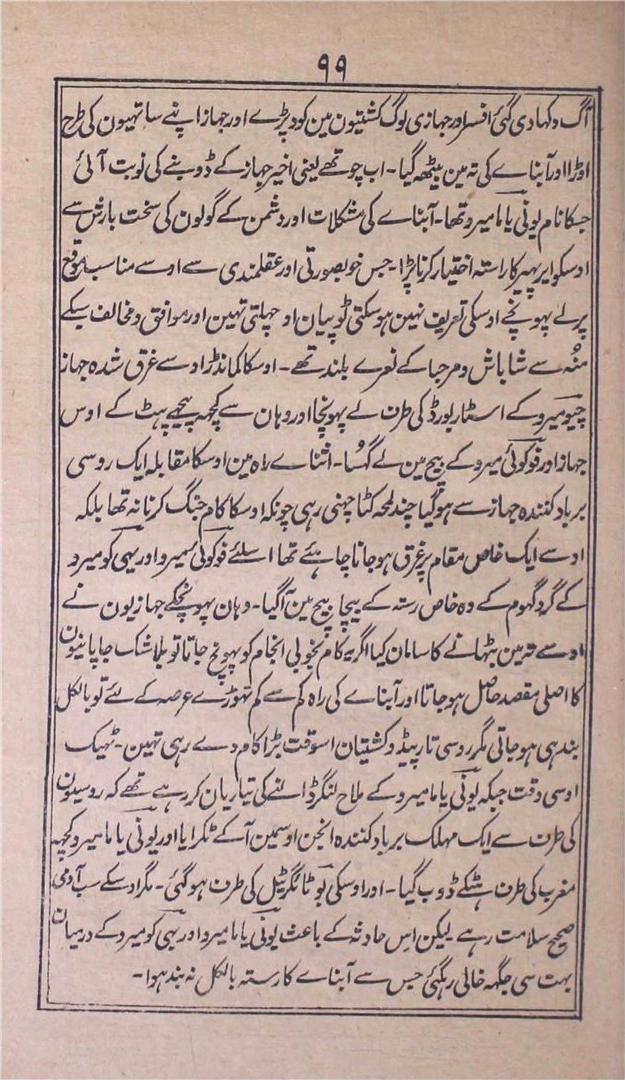 ۹۹
آگ دکہادی گئی افسر اور جہازی لوگ کشتیون مین کود پڑے اور جہاز اپنے ساتہیون کی طرح
اوڑا اور آبناے کی تہ مین بیٹھہ گیا۔ اب چوتھے یعنی اخیر جہاز کے ڈوبنے کی نوبت آئی
جسکا نام یونی یاما میرو تھا۔ آبناے کی مشکلات اور دشمن کے گولون کی سخت بارش سے
اوسکو ایر پھیر کا راستہ اختیار کرنا پڑا۔ جس خوبصورتی اور عقلمندی سے اوسے مناسب موقع
پر لے پہونچے اوسکی تعریف نہین ہوسکتی ٹوپیان اوچہلتی تہین اور موافق و مخالف سبکے
منُہ سے شاباش و مرحبا کے نعرے بلند تھے۔ اوسکا کمانڈر اوسے غرق شدہ جہاز
چیو میرو کے اسٹار بورڈ کی طرف لے پہونچا اور وہان سے کچہہ پیچہے ہٹ کے اوس
جہاز اور فوکوئی میرو کے بیچ مین لے گہُسا۔ اثناے راہ مین اوسکا مقابلہ ایک روسی
برباد کنندہ جہاز سے ہو گیا چند لمحہ کٹا چہنی رہی چونکہ اوسکا کام جنگ کرنا نہ تھا بلکہ
اوسے ایک خاص مقام پر غرق ہو جانا چاہئے تھا اسلئے فوکوئی میرو اور یہی کو میرو
کے گرد گہوم کے وہ خاص رستہ کے بیچا بیچ مین آگیا۔ وہان پہونچکے جہازیون نے
اوسے تہ مین بٹہانے کا سامان کیا اگر یہ کام بخوبی انجام کو پہونچ جاتا تو بلاشک جاپانیون
کا اصلی مقصد حاصل ہو جاتا اور آبناے کی راہ کم سے کم تہوڑے عرصہ کے لئے تو بالکل
بند ہی ہو جاتی مگر روسی تارپیڈو کشتیان اسوقت بڑا کام دے رہی تہین۔ ٹہیک
اوسی وقت جبکہ یونی یاما میرو کے ملاح لنگر ڈالنے کی تیاریان کر رہے تھے کہ روسیون
کی طرف سے ایک مہلک برباد کنندہ انجن اوسمین آکے ٹکرایا اور یونی یاما میرو کچہہ
مغرب کی طرف ہٹکے ڈوب گیا۔ اور اوسکی بو ٹائگر ٹیل کی طرف ہوگئی۔ مگر اوسکے سب آدمی
صحیح سلامت رہے لیکن اس حادثہ کے باعث یونی یاما میرو اور یہی کو میرو کے درمیان
بہت سی جگہہ خالی رہگئی جس سے آبناے کا رستہ بالکل نہ بند ہوا۔